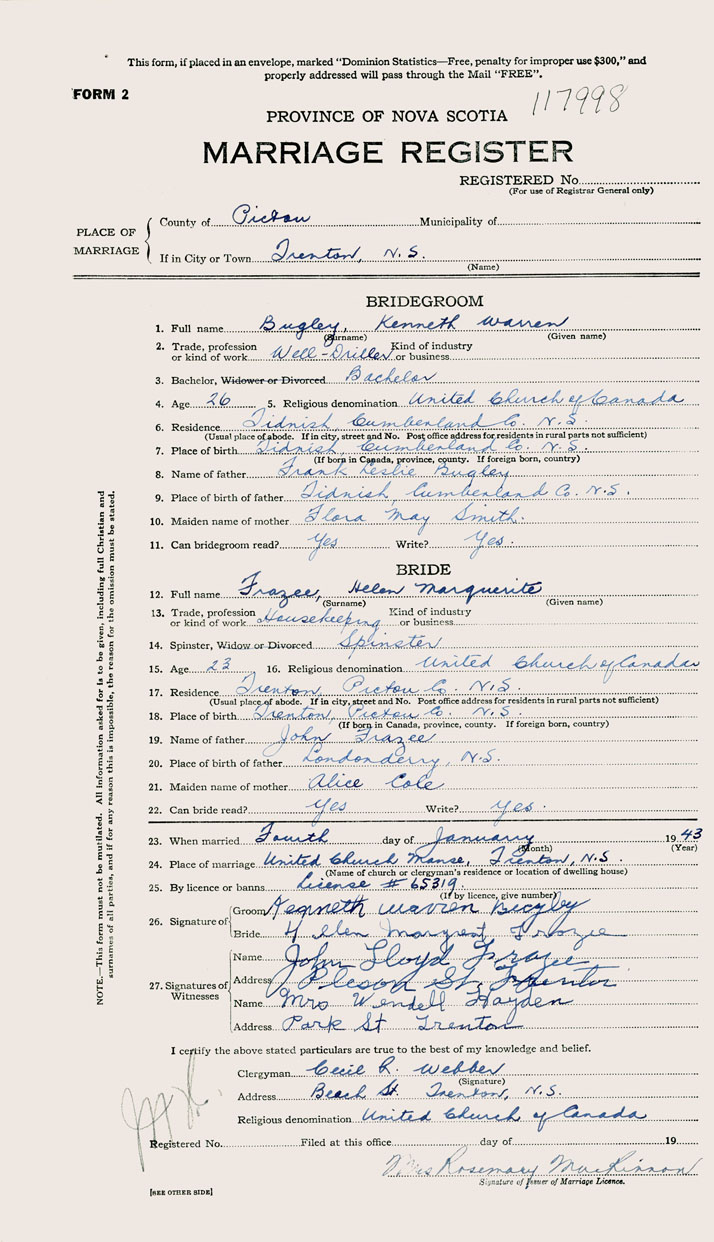 This form, if placed in an envelope, marked "Dominion Statistics—Free, penalty for improper use $300," and
properly addressed will pass through the Mail "FREE".
FORM 2
117998
PROVINCE OF NOVA SCOTIA
MARRIAGE REGISTER
REGISTERED No.
(For use of Registrar General only)
PLACE OF MARRIAGE
County of Pictou Municipality of
If in City or Town Trenton, N.S.
(Name)
BRIDEGROOM
1. Full name Bugley, Kenneth Warren
(Surname) (Given name)
2. Trade, profession or kind of work Well-Driller Kind of industry or business
3. Bachelor, Widower or Divorced Bachelor
4. Age 26 5. Religious denomination United Church of Canada
6. Residence Tidnish, Cumberland Co. N.S.
(Usual place of abode. If in city, street and No. Post office address for residents in rural parts not sufficient)
7. Place of birth Tidnish, Cumberland Co. N.S.
(If born in Canada, province, county. If foreign born, country)
8. Name of father Frank Leslie Bugley
9. Place of birth of father Tidnish, Cumberland Co. N.S.
10. Maiden name of mother Flora May Smith.
11. Can bridegroom read? Yes Write? Yes.
BRIDE
12. Full name Frazee, Helen Marguerite
(Surname) (Given name)
13. Trade, profession or kind of work Housekeeping Kind of industry or business
14. Spinster, Widow or Divorced Spinster
15. Age 23 16. Religious denomination United Church of Canada
17. Residence Trenton, Pictou Co. N.S.
(Usual place of abode. If in city, street and No. Post office address for residents in rural parts not sufficient)
18. Place of birth Trenton, Pictou Co. N.S.
(If born in Canada, province, county. If foreign born, country)
19. Name of father John Frazee
20. Place of birth of father Londonderry, N.S.
21. Maiden name of mother Alice Cole
22. Can bride read? Yes Write? Yes.
23. When married Fourth day of January 1943
(Month) (Year)
24. Place of marriage United Church Manse, Trenton, N.S.
(Name of church or clergyman's residence or location of dwelling house)
25. By licence or banns License # 65319.
(If by licence, give number)
26. Signature of
Groom Kenneth Warren Bugley
Bride Hellen Margret Frazie
27. Signatures of Witnesses
Name John Lloyd Frazee
Address St, Trenton
Name Mrs Wendell Hayden
Address Park St Trenton
I certify the above stated particulars are true to the best of my knowledge and belief.
Clergyman Cecil R. Webber
(Signature)
Address Beach St. Trenton, N.S.
Religious denomination United Church of Canada
Registered No. Filed at this office day of 19
Mrs Rosemary MacKinnon
Signature of Issuer of Marriage Licence.
[SEE OTHER SIDE]
NOTE.—This form must not be mutilated. All information asked for is to be given, including full Christian and
surnames of all parties, and if for any reason this is impossible, the reason for the omission must be stated.